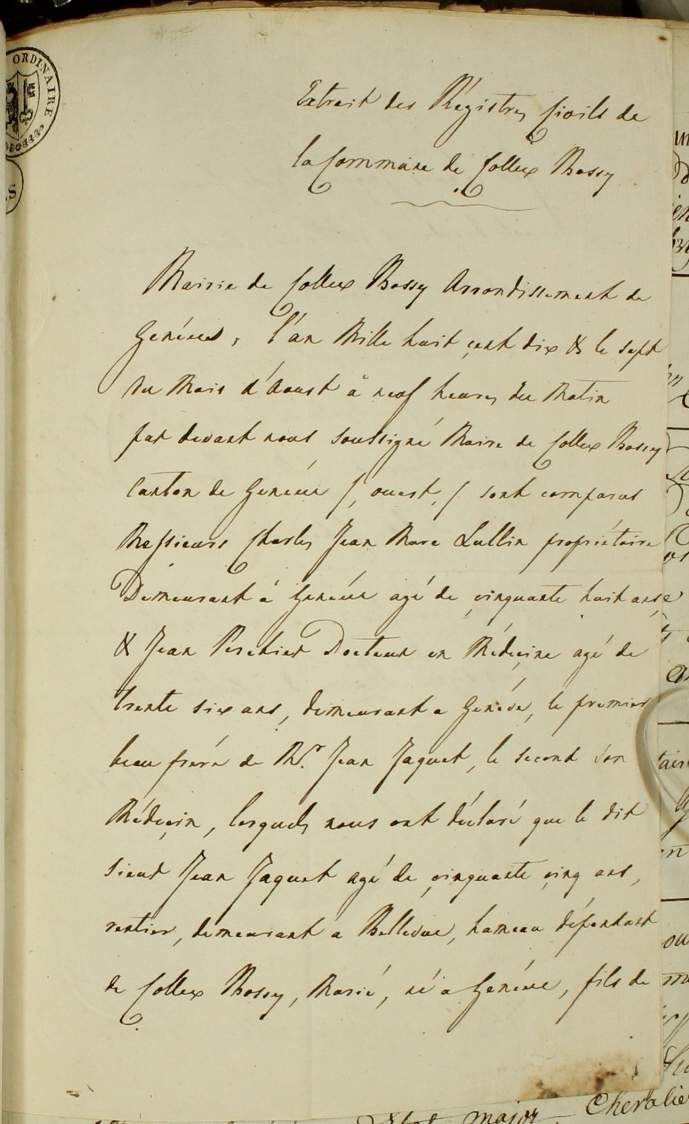 ORDINAIRE
Extrait des Régistres Civils de
la Commune de Collex Bossy
Mairie de Collex Bossy Arrondissement de
Genève, l'an Mille huit cent dix & le sept
du Mois d'Aoust à neuf heures du Matin
par devant nous soussigné Maire de Collex Bossy
Canton de Genève (, ouest, ( sont comparus
Messieurs Charles Jean Marc Lullin propriétaire
Demeurant à Genève agé de cinquante huit ans
& Jean Peschier Docteur en Médecine agé de
trente six ans, demeurant a Genève, le premier
beau frére de Mr. Jean Jaquet, le second son
Médecin, lesquels nous ont déclaré que le dit
sieur Jean Jaquet agé de cinquante cinq ans,
rentier, demeurant a Bellevue, hameau dépendant
de Collex Bossy, Marié, né a Genève, fils de
major Chevalie